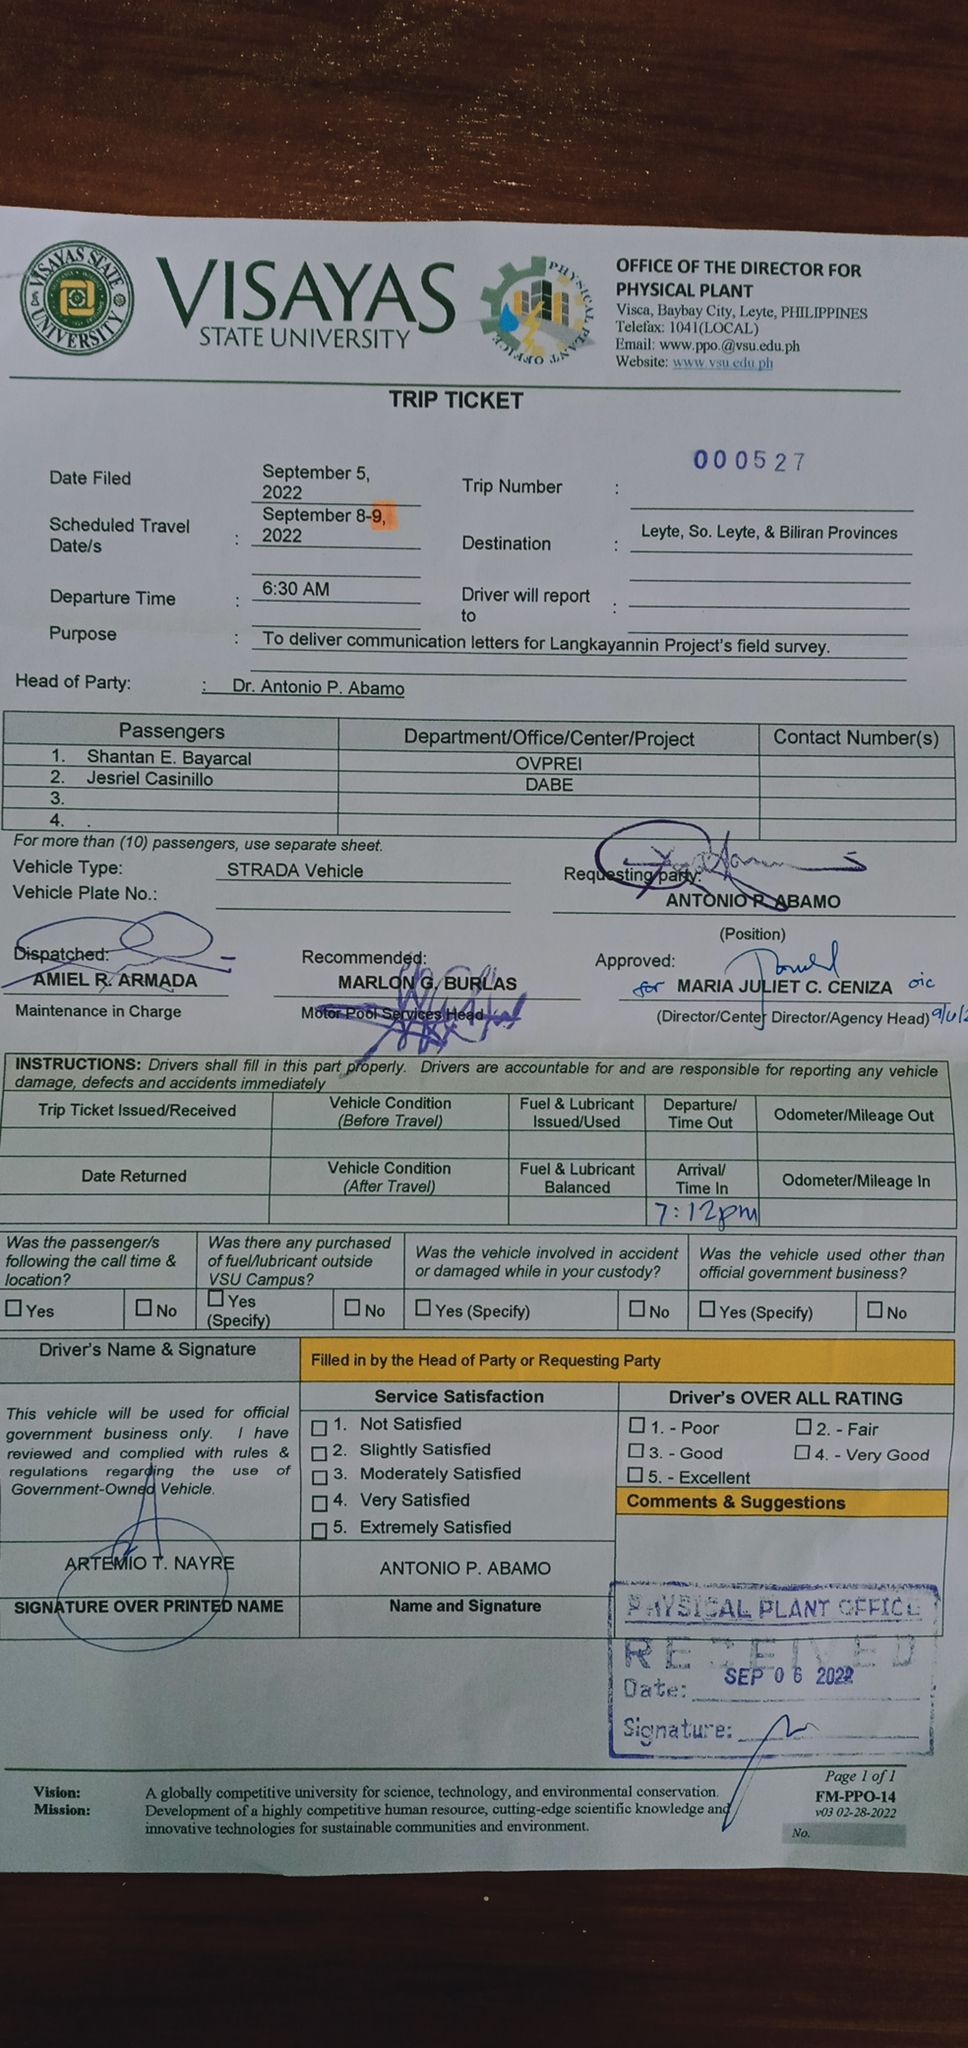 VISAYAS STATE UNIVERSITY
VISAYAS
STATE UNIVERSITY
PHYSICAL PLANT OFFICE
OFFICE OF THE DIRECTOR FOR
PHYSICAL PLANT
Visca, Baybay City, Leyte, PHILIPPINES
Telefax: 1041(LOCAL)
Email: www.ppo.@vsu.edu.ph
Website: www.vsu.edu.ph
TRIP TICKET
000527
Date Filed September 5, 2022 Trip Number :
Scheduled Travel Date/s : September 8-9, 2022 Destination : Leyte, So. Leyte, & Biliran Provinces
Departure Time : 6:30 AM Driver will report to :
Purpose : To deliver communication letters for Langkayannin Project's field survey.
Head of Party: : Dr. Antonio P. Abamo
Passengers Department/Office/Center/Project Contact Number(s)
1. Shantan E. Bayarcal OVPREI
2. Jesriel Casinillo DABE
3.
4. .
For more than (10) passengers, use separate sheet.
Vehicle Type: STRADA Vehicle Requesting party:
Vehicle Plate No.: ANTONIO P. ABAMO
(Position)
Dispatched: Recommended: Approved:
AMIEL R. ARMADA MARLON G. BURLAS for MARIA JULIET C. CENIZA oic
Maintenance in Charge Motor Pool Services Head (Director/Center Director/Agency Head)
INSTRUCTIONS: Drivers shall fill in this part properly. Drivers are accountable for and are responsible for reporting any vehicle
damage, defects and accidents immediately
Trip Ticket Issued/Received Vehicle Condition (Before Travel) Fuel & Lubricant Issued/Used Departure/ Time Out Odometer/Mileage Out
Date Returned Vehicle Condition (After Travel) Fuel & Lubricant Balanced Arrival/ Time In Odometer/Mileage In
7:12pm
Was the passenger/s following the call time & location? Was there any purchased of fuel/lubricant outside VSU Campus? Was the vehicle involved in accident or damaged while in your custody? Was the vehicle used other than official government business?
Yes No Yes (Specify) No Yes (Specify) No Yes (Specify) No
Driver's Name & Signature Filled in by the Head of Party or Requesting Party
This vehicle will be used for official
government business only. I have
reviewed and complied with rules &
regulations regarding the use of
Government-Owned Vehicle.
Service Satisfaction
1. Not Satisfied
2. Slightly Satisfied
3. Moderately Satisfied
4. Very Satisfied
5. Extremely Satisfied
Driver's OVER ALL RATING
1. - Poor 2. - Fair
3. - Good 4. - Very Good
5. - Excellent
Comments & Suggestions
ARTEMIO T. NAYRE ANTONIO P. ABAMO
SIGNATURE OVER PRINTED NAME Name and Signature
PHYSICAL PLANT OFFICE
RECEIVED
Date: SEP 06 2022
Signature:
Vision: A globally competitive university for science, technology, and environmental conservation.
Mission: Development of a highly competitive human resource, cutting-edge scientific knowledge and
innovative technologies for sustainable communities and environment.
Page 1 of 1
FM-PPO-14
v03 02-28-2022
No.